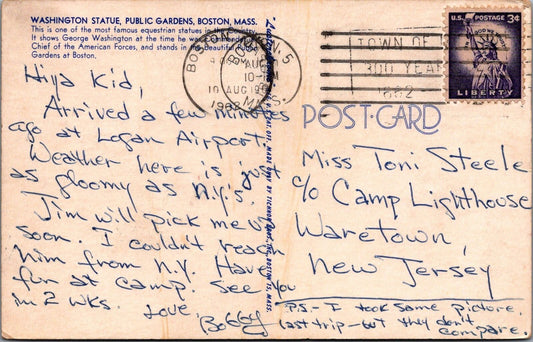 WASHINGTON STATUE, PUBLIC GARDENS, BOSTON, MASS.
This is one of the most famous equestrian statues in the Country.
It shows George Washington at the time he was Commander in
Chief of the American Forces, and stands in the beautiful Public
Gardens at Boston.
Hiya Kid,
Arrived a few minutes
ago at Logan Airport.
Weather here is just
as gloomy as N.Y.'s.
Jim will pick me up
soon. I couldn't reach
him from N.Y. Have
fun at camp. See you
in 2 wks.
Love,
Bobby
BOSTON
AUG
10
1962
MASS.
TOWN OF
300 YEAR
1662
U.S. POSTAGE 3¢
LIBERTY
POST CARD
Miss Toni Steele
c/o Camp Lighthouse
Waretown,
New Jersey
P.S.- I took same picture
last trip - but they don't
compare.